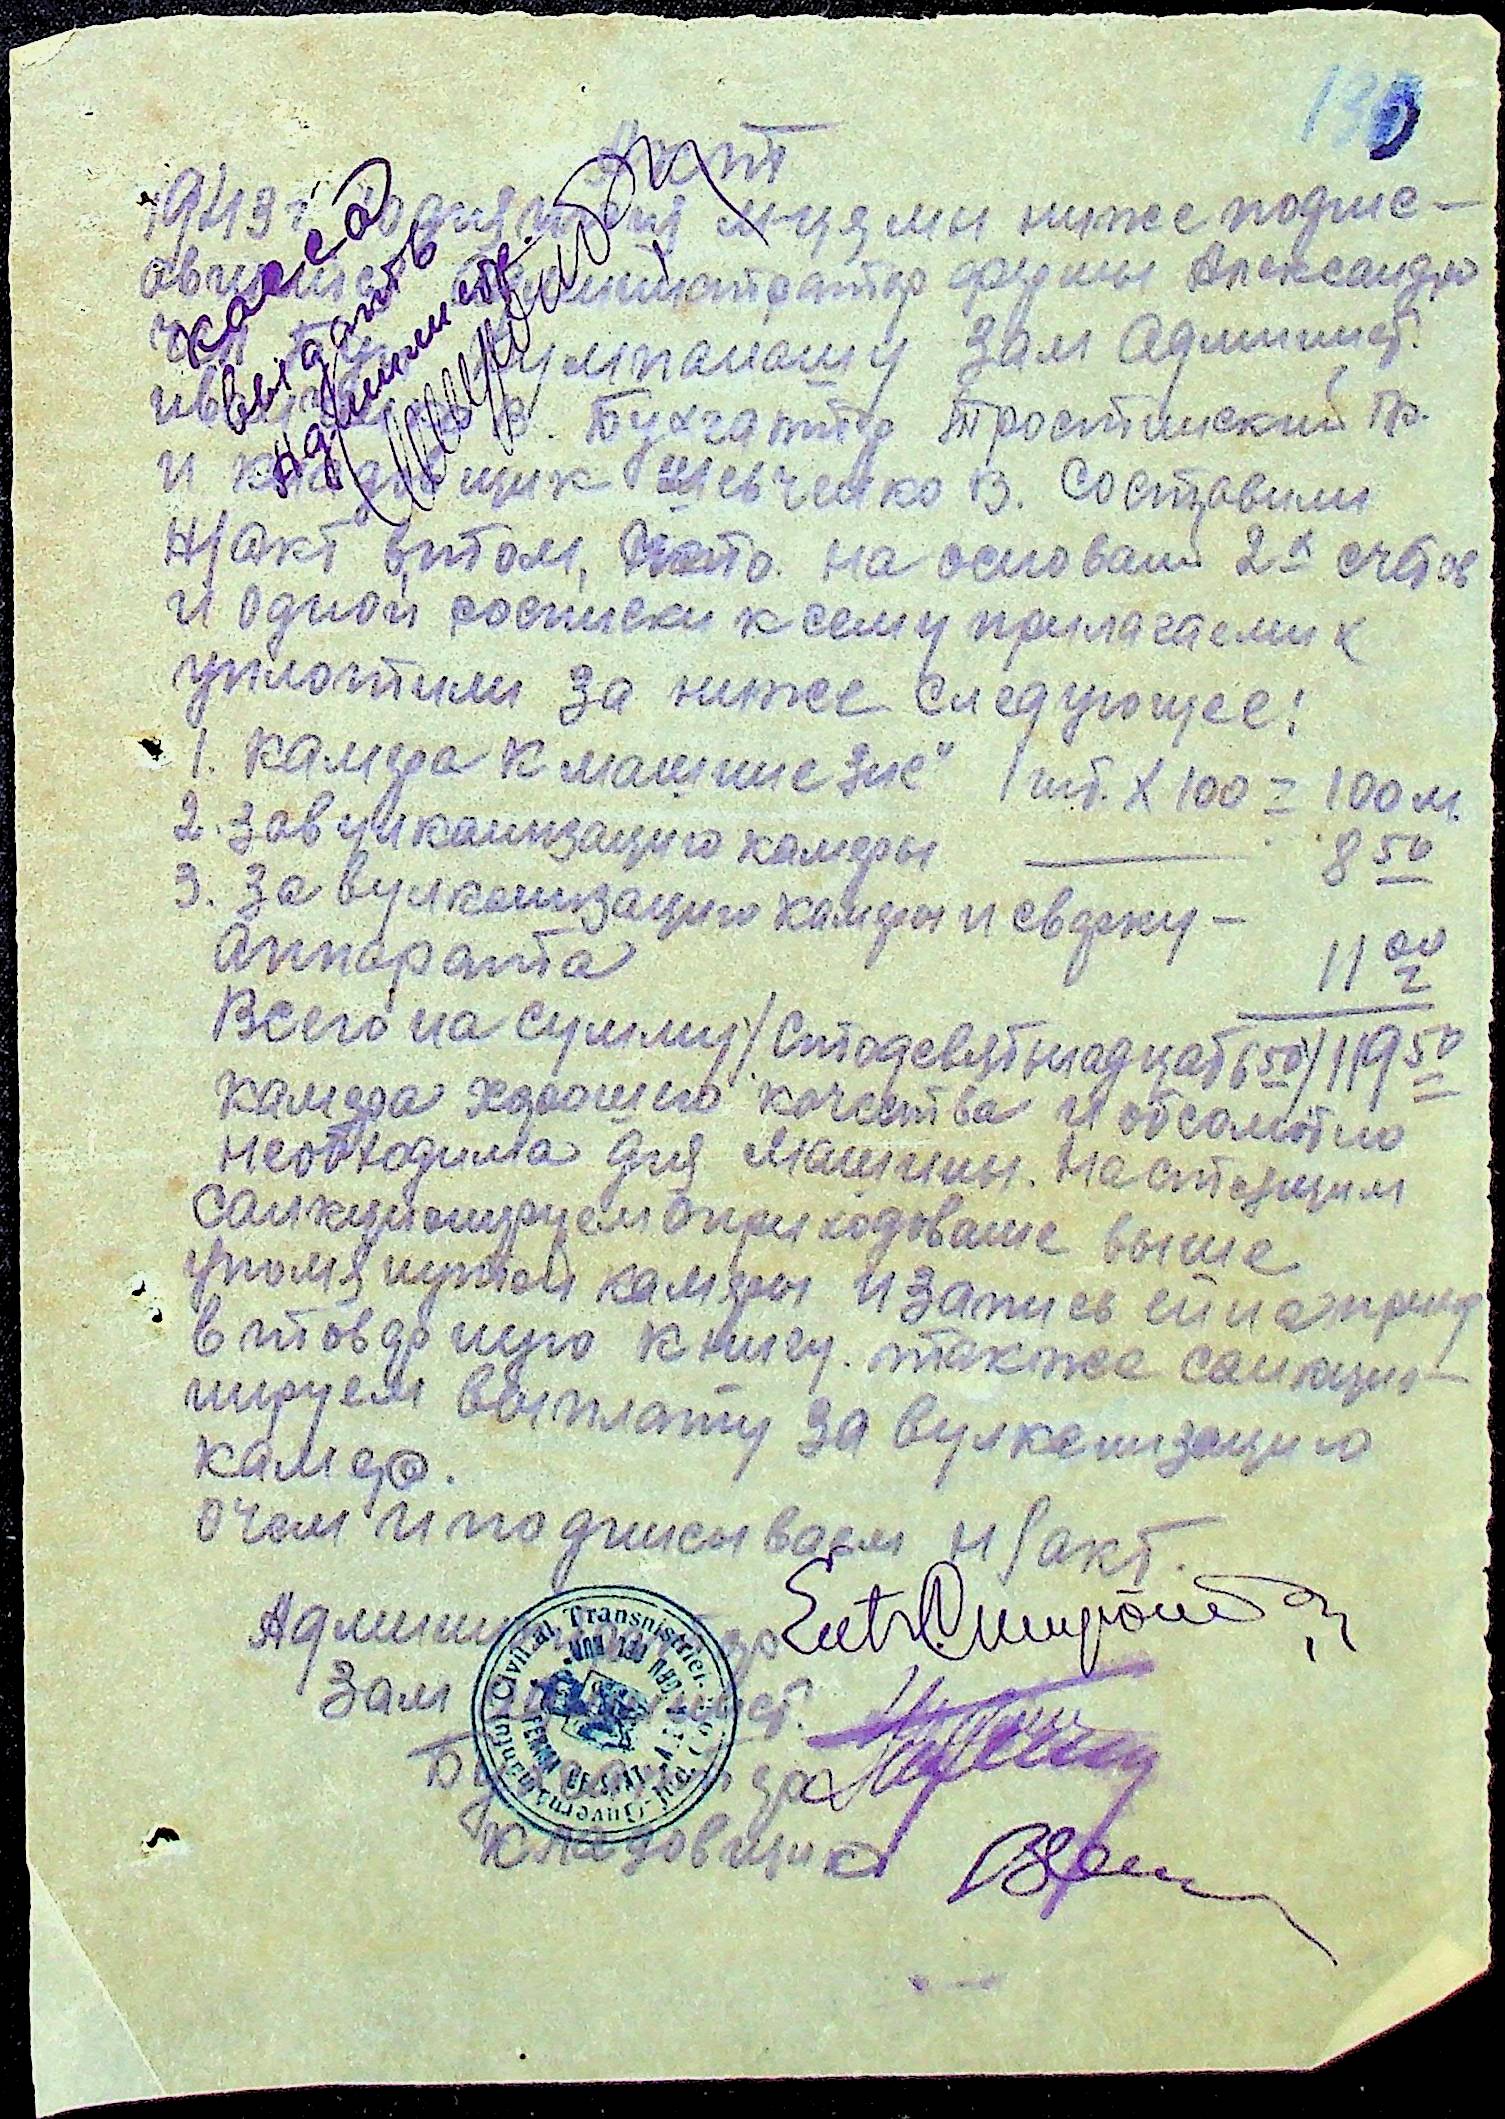 Акт
1943 г. м-ця мы ниже подпис-
Администратор фермы Александро
Кумпанашу Зам Админист.
В. Бухгалтер Тростинский Гр.
и кладовщик Шевченко В. Составили
н/акт в том, что на основани 2х счетов
и одной росписки к сему прилагаемих
уплотили за ниже следующее:
1. камера к машине Зис" 1 шт. X 100 = 100 м.
2. За вулканизацию камеры — 8 50
3. За вулканизацию камеры и сверку-
аппарата 11 00
Всего на сумму/Стодевятнадцать 50/119 50
камера хорошего качества и обсолютно
необходима для машины. Настоящим
Санкционируем оприходование выше
упомянутой камеры и запись ей на приход
в товарную книгу. также санкцио-
нируем выплату за вулканизацию
камер.
о чем и подписываем н/акт.
Администратор
Зам Админист.
Бухгалтер
кладовщик
касса
выдать
Админист.
Guvernământul Civil al Transnistriei
FERMA DE STAT